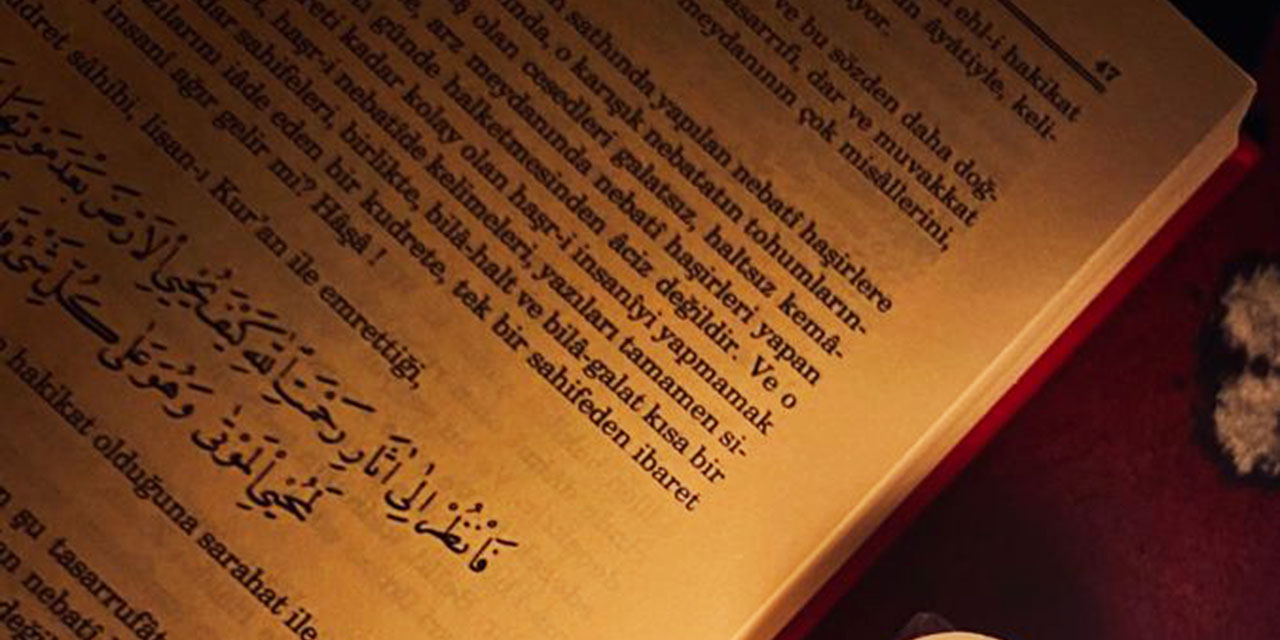 47
ehl-i hakikat
âyâtiyle, keli-
yor.
ve bu sözden daha doğ-
tasarrıfı, dar ve muvakkat
meydanının çok misâllerini,
sathında yapılan nebatî haşirlere
o karışık nebatatın tohumların-
olan cesedleri galatsız, haltsız kemâ-
arz meydanında nebatî haşirleri yapan
günde halketmesinden âciz değildir. Ve o
kadar kolay olan haşr-i insanîyi yapmamak
haşr-i nebatîde kelimeleri, yazıları tamamen si-
sahifeleri, birlikte, bilâ-halt ve bilâ-galat kısa bir
iâde eden bir kudrete, tek bir sahifeden ibaret
insanî ağır gelir mi? Hâşâ !
sâhibi, lisan-ı Kur'an ile emrettiği,
فَانْظُرْ اِلٰٓى اٰثَارِ رَحْمَتِ اللّٰهِ كَيْفَ يُحْيِى الْاَرْضَ بَعْدَ مَوْتِهَا
لَمُحْيِى الْمَوْتٰى وَهُوَ عَلٰى كُلِّ شَىْءٍ
hakikat olduğuna sarahat ile
şu tasarrufât
nebatî